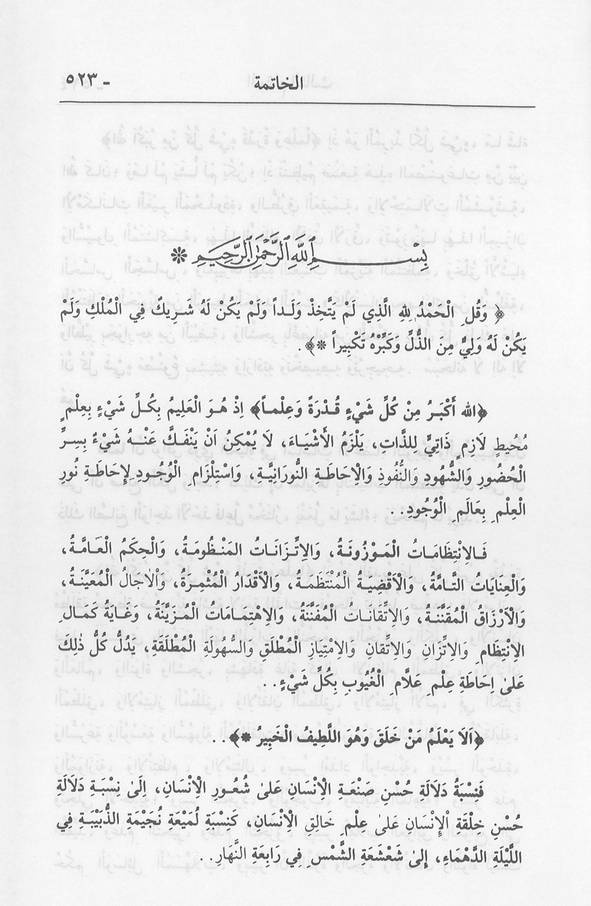 الخاتمة - ٥٢٣
بِسْمِ اللّٰهِ الرَّحْمٰنِ الرَّحِيمِ ❊
﴿ وَقُلِ الْحَمْدُ لِلّٰهِ الَّذِي لَمْ يَتَّخِذْ وَلَداً وَلَمْ يَكُنْ لَهُ شَرِيكٌ فِي الْمُلْكِ وَلَمْ
يَكُنْ لَهُ وَلِيٌّ مِنَ الذُّلِّ وَكَبِّرْهُ تَكْبِيراً ❊﴾.
﴿الله اَكْبَرُ مِنْ كُلِّ شَيْءٍ قُدْرَةً وَعِلْماً﴾ اِذْ هُوَ الْعَلِيمُ بِكُلِّ شَيْءٍ بِعِلْمٍ
مُحِيطٍ لاَزِمٍ ذَاتِيٍّ لِلذَّاتِ، يَلْزَمُ الْأَشْيَاءَ، لاَ يُمْكِنُ اَنْ يَنْفَكَّ عَنْهُ شَيْءٌ بِسِرِّ
الْحُضُورِ وَالشُّهُودِ وَالنُّفُوذِ وَالْاِحَاطَةِ النُّورَانِيَّةِ، وَاسْتِلْزَامِ الْوُجُودِ لِاِحَاطَةِ نُورِ
الْعِلْمِ بِعَالَمِ الْوُجُودِ..
فَالْاِنْتِظَامَاتُ الْمَوْزُونَةُ، وَالْاِتِّزَانَاتُ الْمَنْظُومَةُ، وَالْحِكَمُ الْعَامَّةُ،
وَالْعِنَايَاتُ التَّامَّةُ، وَالْاَقْضِيَةُ الْمُنْتَظَمَةُ، وَالْاَقْدَارُ الْمُثْمِرَةُ، وَالْاٰجَالُ الْمُعَيَّنَةُ،
وَالْاَرْزَاقُ الْمُقَنَّنَةُ، وَالْاِتْقَانَاتُ الْمُفَنَّنَةُ، وَالْاِهْتِمَامَاتُ الْمُزَيَّنَةُ، وَغَايَةُ كَمَالِ
الْاِنْتِظَامِ وَالْاِتِّزَانِ وَالْاِتْقَانِ وَالْاِمْتِيَازِ الْمُطْلَقِ وَالسُّهُولَةِ الْمُطْلَقَةِ، يَدُلُّ كُلُّ ذٰلِكَ
عَلىٰ اِحَاطَةِ عِلْمِ عَلاَّمِ الْغُيُوبِ بِكُلِّ شَيْءٍ..
﴿اَلاَ يَعْلَمُ مَنْ خَلَقَ وَهُوَ اللَّطِيفُ الْخَبِيرُ ❊﴾..
فَنِسْبَةُ دَلاَلَةِ حُسْنِ صَنْعَةِ الْاِنْسَانِ عَلىٰ شُعُورِ الْاِنْسَانِ، اِلىٰ نِسْبَةِ دَلاَلَةِ
حُسْنِ خِلْقَةِ الْاِنْسَانِ عَلىٰ عِلْمِ خَالِقِ الْاِنْسَانِ، كَنِسْبَةِ لُمَيْعَةِ نُجَيْمَةِ الذُّبَيْبَةِ فِي
اللَّيْلَةِ الدَّهْمَاءِ، اِلىٰ شَعْشَعَةِ الشَّمْسِ فِي رَابِعَةِ النَّهَارِ..